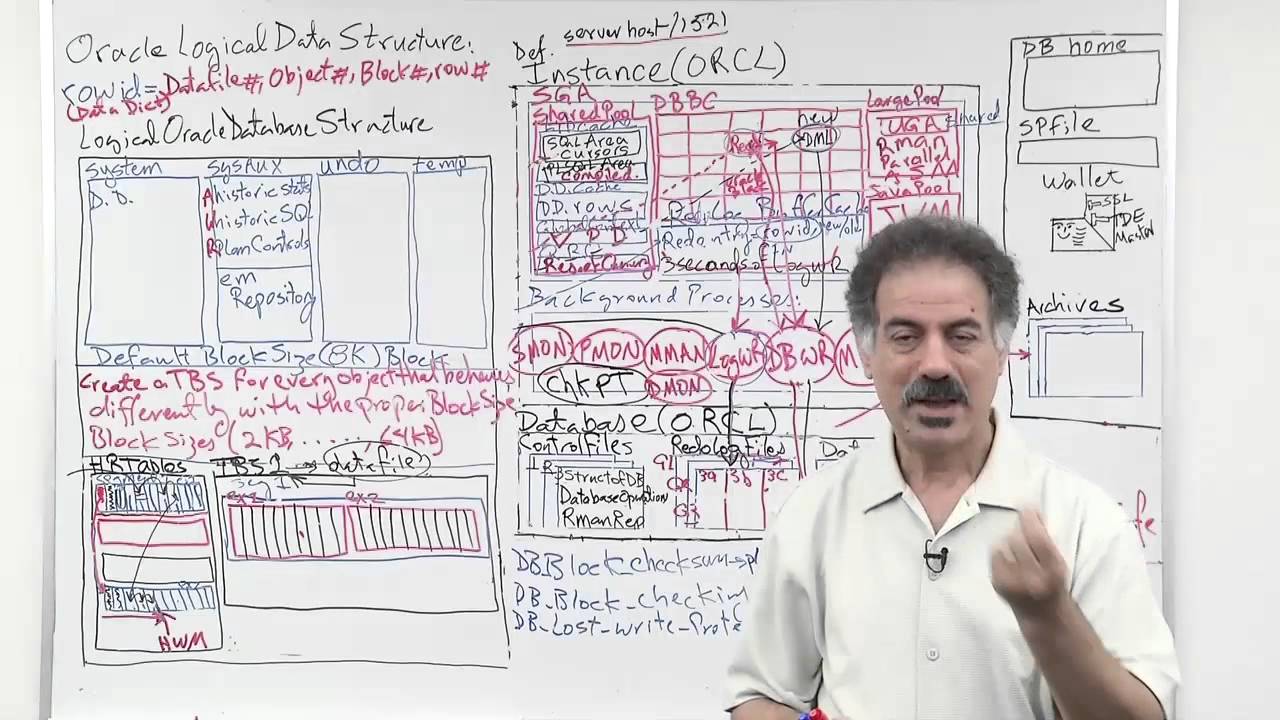 Oracle Logical Data Structure:
rowid = Datafile#, Object#, Block#, row#
(Data Dict)
Logical Oracle Database Structure
system
SysAux
undo
temp
D.D.
A historic stats
W historic SQL
R Plan Controls
em
Repository
Default Block Size (8K) Block
Create a TBS for every object that behaves
differently with the proper Block Size
Block Sizes (2KB
HR Tables
HWM
TBS1
datafile
seg 1
ex1
ex2
Def.
serverhost/1521
Instance (ORCL)
SGA
Shared Pool
SQL Area
Cursors
PL SQL Area
Compiled.
D.D. Cache
DD. rows
DBBC
Read
new
DML
Redo Log Buffer Cache
Redo entry = rowid, new/old
3 seconds of LogWR
Large Pool
UGA
shared
Rman
Parallel
Java Pool
JVM
Background Processes:
SMON
PMON
MMAN
LogWR
DBWR
M
ChKPT
DMON
Database (ORCL)
Control Files
Struct of DB
Database Operation
RmanRep
Redolog Files
G1
3a
3b
3c
Dat
DB_Block_checksum
DB_Block_checkin
DB_Lost_write_Prote
DB home
SPfile
Wallet
SSL
TDE
Master
Archives